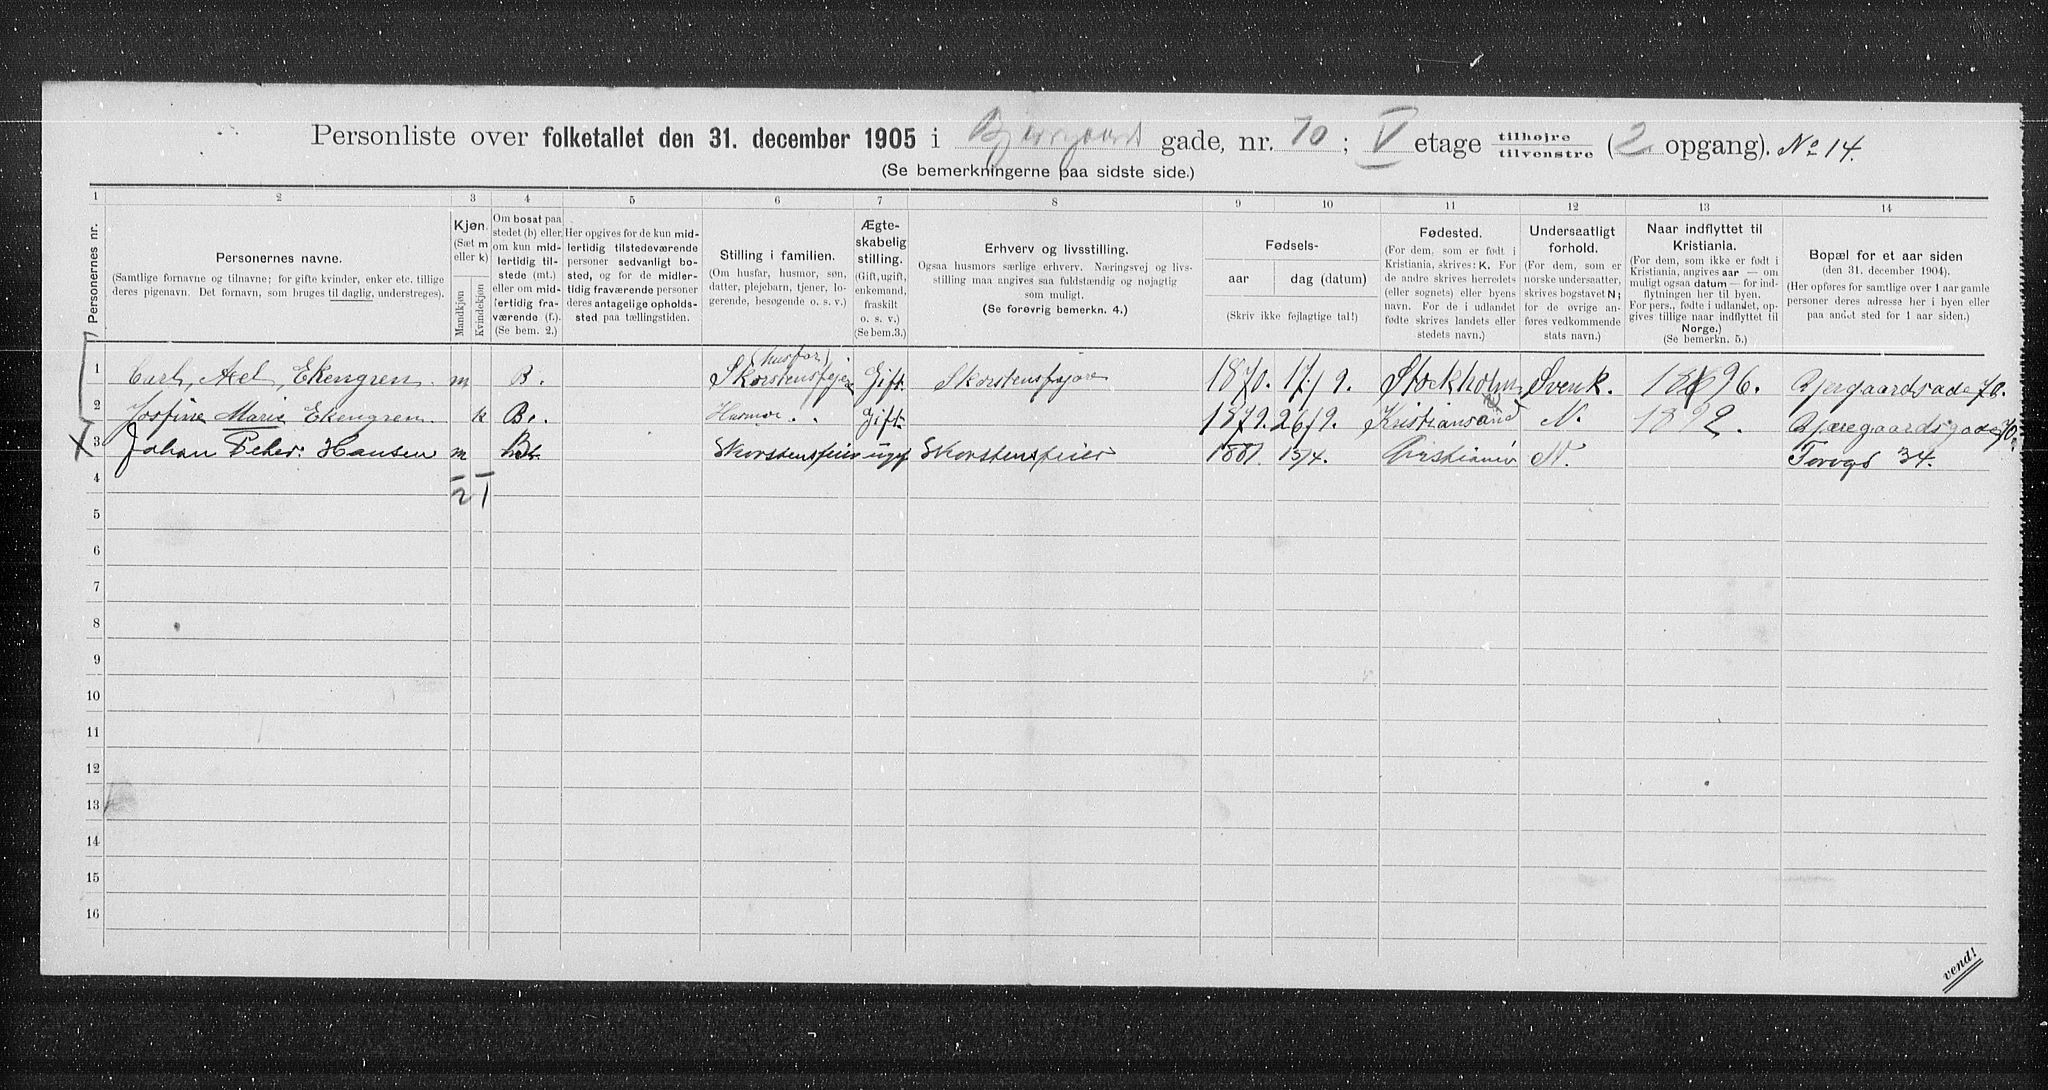 Personliste over folketallet den 31. december 1905 i Bjerregaards gade, nr. 70; V etage tilhøjre / tilvenstre (2 opgang). No 14.
(Se bemerkningerne paa sidste side.)
1 2 3 4 5 6 7 8 9 10 11 12 13 14
Personernes nr.
Personernes navne.
(Samtlige fornavne og tilnavne; for gifte kvinder, enker etc. tillige
deres pigenavn. Det fornavn, som bruges til daglig, understreges).
Kjøn.
(Sæt m
eller k)
Mandkjøn
Kvindekjøn
Om bosat paa
stedet (b) eller
om kun mid-
lertidig til-
stede (mt.)
eller om mid-
lertidig fra-
værende (f.).
(Se bem. 2.)
Her opgives for de kun mid-
lertidig tilstedeværende
personer sedvanligt bo-
sted, og for de midler-
tidig fraværende personer
deres antagelige opholds-
sted paa tællingstiden.
Stilling i familien.
(Om husfar, husmor, søn,
datter, plejebarn, tjener, lo-
gerende, besøgende o. s. v.)
Ægte-
skabelig
stilling.
(Gift, ugift,
enkemand,
fraskilt
o. s. v.)
(Se bem.3.)
Erhverv og livsstilling.
Ogsaa husmors særlige erhverv. Næringsvej og livs-
stilling maa angives saa fuldstændig og nøjagtig
som muligt.
(Se forøvrig bemerkn. 4.)
Fødsels-
aar
dag (datum)
(Skriv ikke fejlagtige tal!)
Fødested.
(For dem, som er født i
Kristiania, skrives: K. For
de andre skrives herredets
(eller sognets) eller byens
navn. For de i udlandet
fødte skrives landets eller
stedets navn.)
Undersaatligt
forhold.
(For dem, som er
norske undersaatter,
skrives bogstavet N;
for de øvrige an-
føres vedkommende
stats navn.)
Naar indflyttet til
Kristiania.
(For dem, som ikke er født i
Kristiania, angives aar — om
muligt ogsaa datum — for ind-
flytningen her til byen.
For pers., fødte i udlandet, op-
gives tillige naar indflyttet til
Norge.)
(Se bemerkn. 5.)
Bopæl for et aar siden
(den 31. december 1904).
(Her opføres for samtlige over 1 aar gamle
personer deres adresse her i byen eller
paa andet sted for 1 aar siden.)
(husfar)
1 Carl, Axel, Ekengren. m B. Skorstensfejer Gift. Skorstensfejer 1870. 17/9. Stockholm Svensk. 1896. Bjergaardsgade 70.
2 Josfine Marie Ekengren. k B. Husmor. Gift. 1879. 26/9. Kristiansand N. 1892. Bjæregaardsgade 70.
X 3 Johan Peter Hansen m B. Skorstensfeier ugif Skorstensfeier 1881. 15/4. Cristiania N. Torvgt 34.
4 2 1
5
6
7
8
9
10
11
12
13
14
15
16
vend!